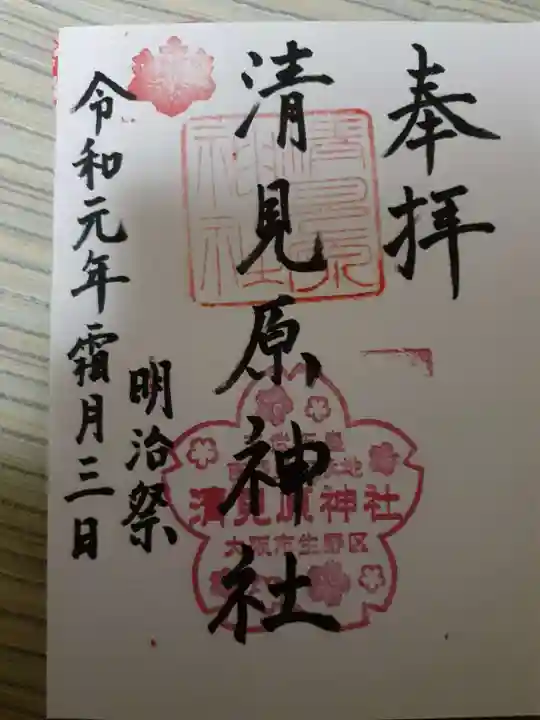 奉拝
清見原神社
明治祭
令和元年霜月三日
清見原神社
清見原神社
大阪市生野区